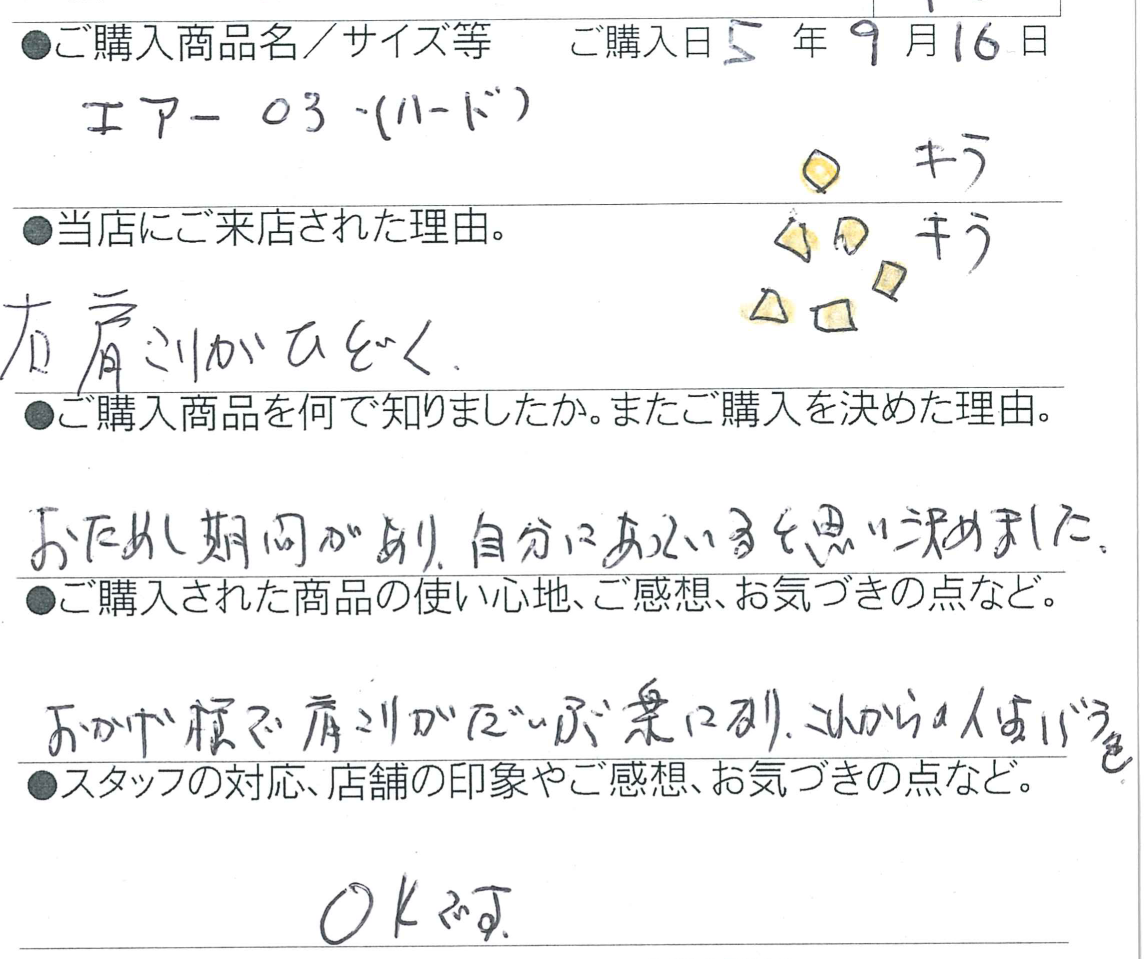 ●ご購入商品名／サイズ等 ご購入日 5 年 9 月 16 日
エアー 03 -(ハード)
キラ
●当店にご来店された理由。
キラ
右肩こりがひどく.
●ご購入商品を何で知りましたか。またご購入を決めた理由。
おためし期間があり、自分にあっていると思い決めました、
●ご購入された商品の使い心地、ご感想、お気づきの点など。
おかげ様で肩こりがだいぶ楽になり、これからの人生バラ色
●スタッフの対応、店舗の印象やご感想、お気づきの点など。
OKです.